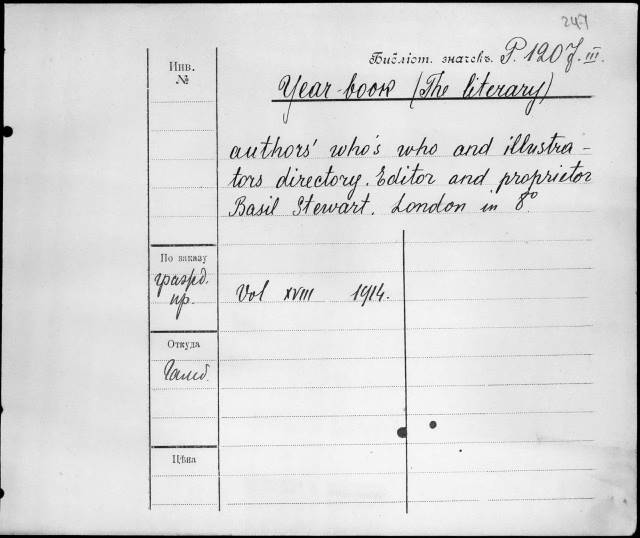 247
Инв.
№
Библіот. значекъ. P. 1207. III.
Year-book (The literary)
authors' who's who and illustra-
tors directory. Editor and proprietor
Basil Stewart. London in 8°
По заказу
гражд.
пр.
Vol XVIII 1914.
Откуда
Цѣна